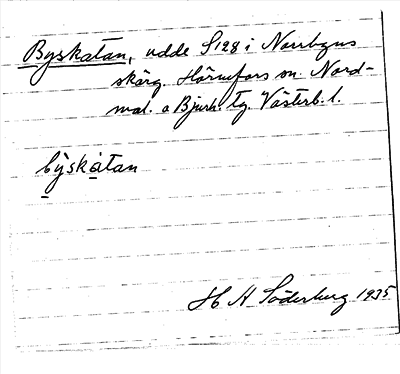 Byskatan, udde S128 i Norrbyns
skärg. Hörnefors sn Nord-
mal. o Bjurh. tg. Västerb. l.
býskàtan
H H Söderburg 1935